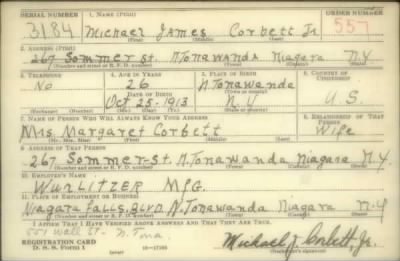 SERIAL NUMBER 1. NAME (Print) ORDER NUMBER
3184 Michael James Corbett Jr 557
(First) (Middle) (Last)
2. ADDRESS (Print)
267 Sommer-St. N.Tonawanda Niagara N.Y.
(Number and street or R. F. D. number) (Town) (County) (State)
3. TELEPHONE 4. AGE IN YEARS 5. PLACE OF BIRTH 6. COUNTRY OF CITIZENSHIP
No 26 N.Tonawanda
DATE OF BIRTH (Town or county)
Oct 25-1913 N.Y U.S.
(Exchange) (Number) (Mo.) (Day) (Yr.) (State or country)
7. NAME OF PERSON WHO WILL ALWAYS KNOW YOUR ADDRESS 8. RELATIONSHIP OF THAT PERSON
Mrs Margaret Corbett Wife
(Mr., Mrs., Miss) (First) (Middle) (Last)
9. ADDRESS OF THAT PERSON
267 Sommer-St. N.Tonawanda Niagara N.Y.
(Number and street or R. F. D. number) (Town) (County) (State)
10. EMPLOYER'S NAME
Wurlitzer Mfg.
11. PLACE OF EMPLOYMENT OR BUSINESS
Niagara Falls.Blvd. N.Tonawanda Niagara N.Y
(Number and street or R. F. D. number) (Town) (County) (State)
I AFFIRM THAT I HAVE VERIFIED ABOVE ANSWERS AND THAT THEY ARE TRUE.
Wall St- N. Tona.
REGISTRATION CARD
D. S. S. Form 1 (over) 16—17105 Michael J Corbett, Jr.